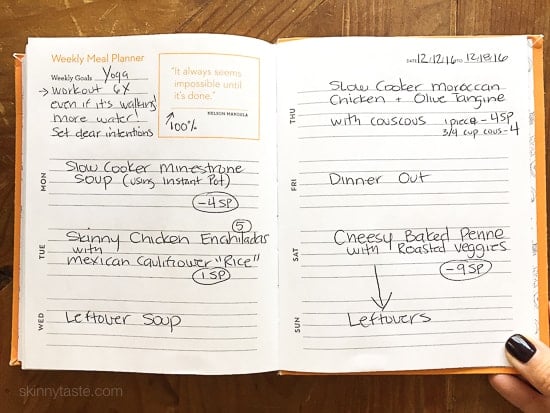 Weekly Meal Planner
Weekly Goals Yoga
→ workout 6X
even if it's walking
more water!
Set clear intentions
"It always seems
impossible until
it's done."
NELSON MANDELA
100%
MON
Slow Cooker Minestrone
Soup (using Instant Pot)
-4 SP
TUE
5
Skinny Chicken Enchiladas
with
mexican cauliflower "Rice"
1 SP
WED
Leftover Soup
DATE 12/12/16 TO 12/18/16
THU
Slow Cooker moroccan
Chicken + Olive Tangine
with couscous 1 piece - 4SP
3/4 cup cous - 4
FRI
Dinner Out
SAT
Cheesy Baked Penne
with Roasted veggies
-9 SP
SUN
Leftovers
skinnytaste.com